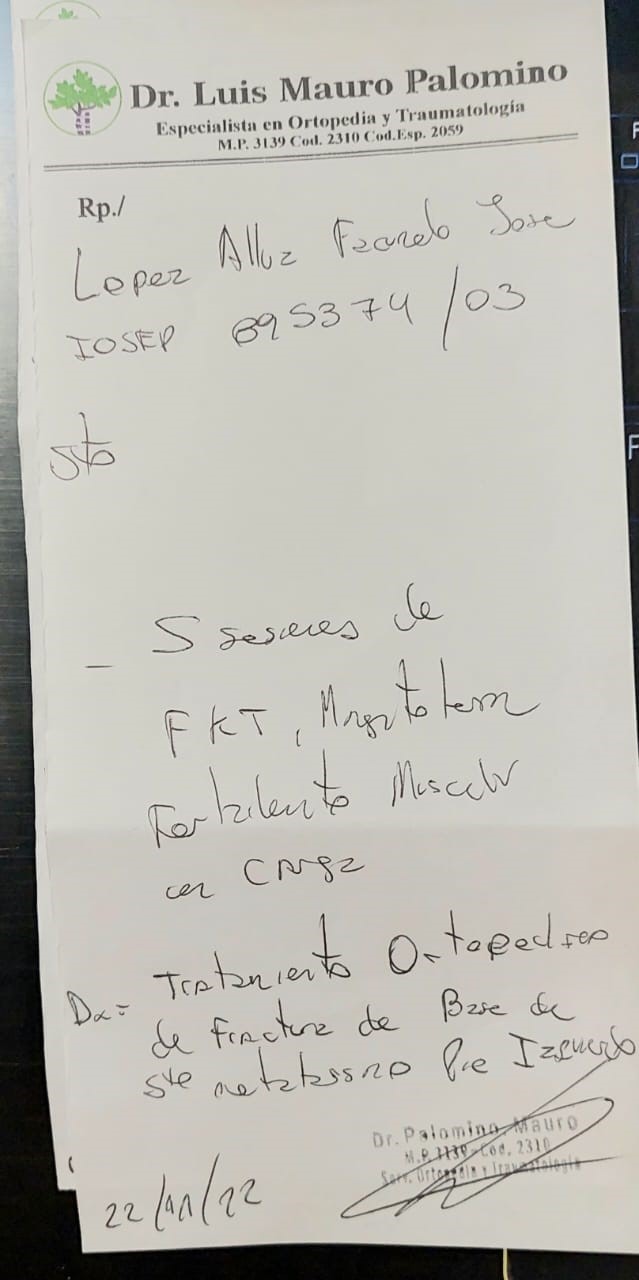 Dr. Luis Mauro Palomino
Especialista en Ortopedia y Traumatología
M.P. 3139 Cod. 2310 Cod.Esp. 2059
Rp./
Lopez Facundo Jose
IOSEP 895374/03
Sto
- 5 sesiones de
FKT, Magnetoterapia
Fortalecimiento Muscular
con carga
Dx= Tratamiento Ortopedico
de Fractura de Base de
5to metatarsiano Pie Izquierdo
Dr. Palomino Mauro
M.P. 3139-Cod. 2310
Serv. Ortopedia y Traumatologia
22/11/22